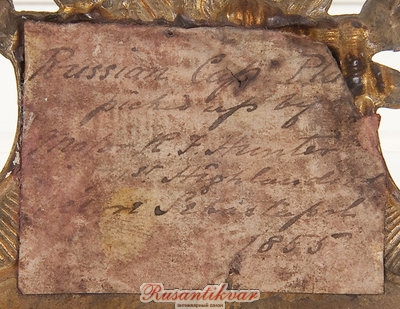 Russian Cap Pla
picked up by
Major R. F. Hunter
Highland
Sevastopol
1855
Rusantikvar